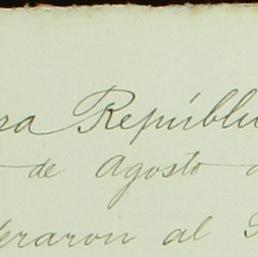 ra Repúbli
de Agosto
eraron al